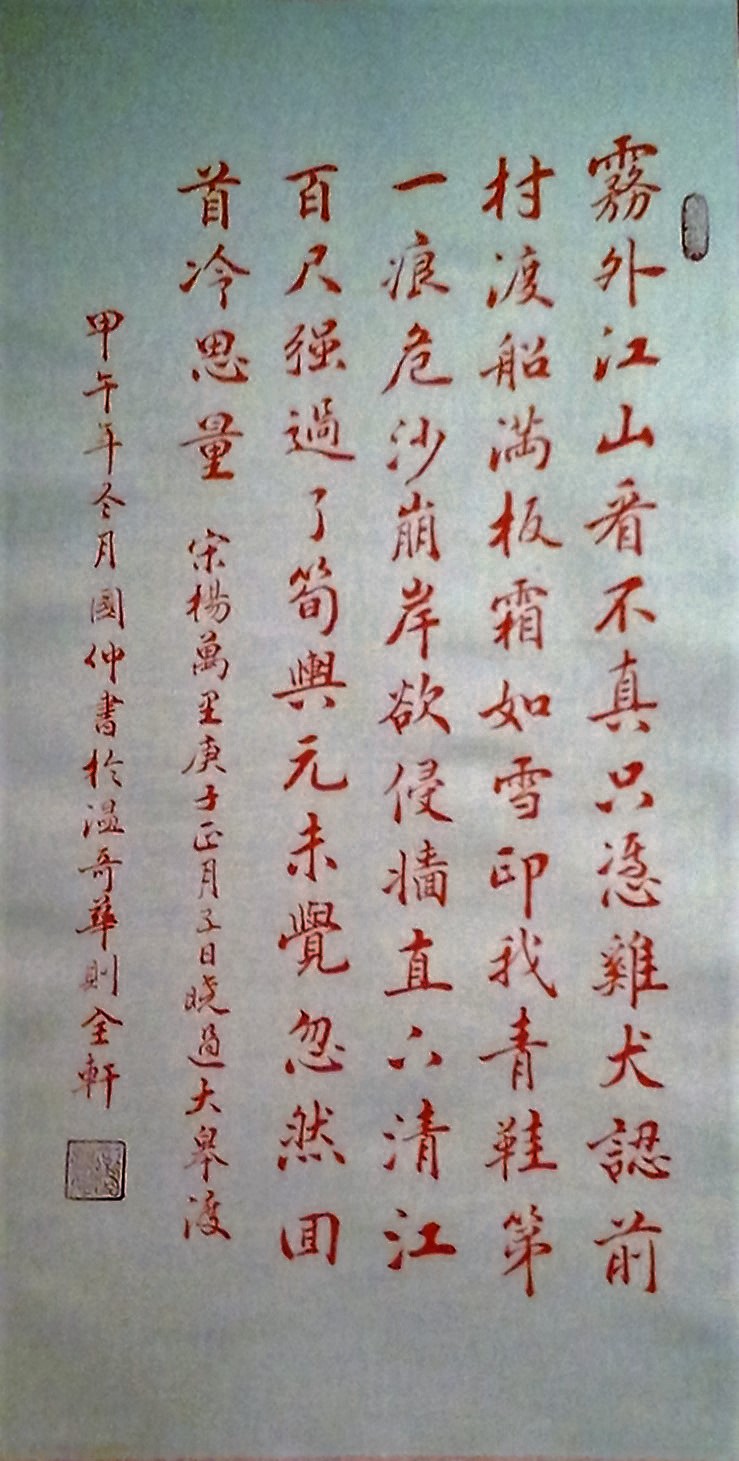 霧外江山看不真只憑雞犬認前
村渡船滿板霜如雪印我青鞋第
一痕危沙崩岸欲侵墻直下清江
百尺强過了筍輿元未覺忽然回
首冷思量 宋楊萬里庚子正月五日曉過大皋渡
甲午年冬月國仲書於溫哥華則全軒